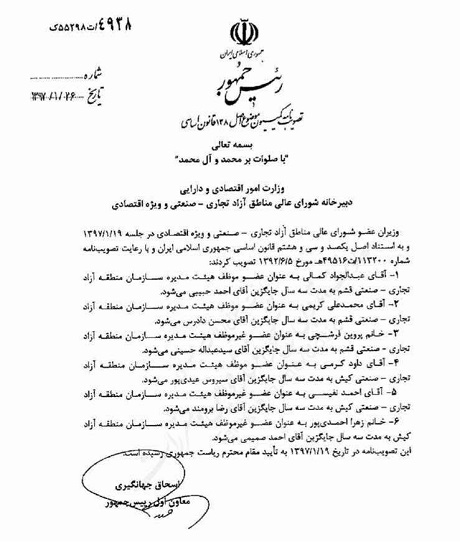 ۴۹۳۸/ت۵۵۲۹۸ک
جمهوری اسلامی ایران
رئیس جمهور
تصویب نامه کمیسیون موضوع اصل ۱۳۸ قانون اساسی
شماره
تاریخ ۱۳۹۷/۰۱/۲۶
بسمه تعالی
"با صلوات بر محمد و آل محمد"
وزارت امور اقتصادی و دارایی
دبیرخانه شورای عالی مناطق آزاد تجاری – صنعتی و ویژه اقتصادی
وزیران عضو شورای عالی مناطق آزاد تجاری – صنعتی و ویژه اقتصادی در جلسه ۱۳۹۷/۱/۱۹
و به استناد اصل یکصد و سی و هشتم قانون اساسی جمهوری اسلامی ایران و با رعایت تصویب‌نامه
شماره ۱۱۳۲۰۰/ت۴۹۵۱۶هـ مورخ ۱۳۹۲/۶/۵ تصویب کردند:
۱- آقای عبدالجواد کمالی به عنوان عضو موظف هیئت مدیره سازمان منطقه آزاد
تجاری – صنعتی قشم به مدت سه سال جایگزین آقای احمد حبیبی می‌شود.
۲- آقای محمدعلی کریمی به عنوان عضو موظف هیئت مدیره سازمان منطقه آزاد
تجاری – صنعتی قشم به مدت سه سال جایگزین آقای محسن دادرس می‌شود.
۳- خانم پروین فرشچی به عنوان عضو غیرموظف هیئت مدیره سازمان منطقه آزاد
تجاری – صنعتی قشم به مدت سه سال جایگزین آقای سیدعبداله حسینی می‌شود.
۴- آقای داود کرمی به عنوان عضو موظف هیئت مدیره سازمان منطقه آزاد
تجاری – صنعتی کیش به مدت سه سال جایگزین آقای سیروس عیدی‌پور می‌شود.
۵- آقای احمد نفیسی به عنوان عضو غیرموظف هیئت مدیره سازمان منطقه آزاد
تجاری – صنعتی کیش به مدت سه سال جایگزین آقای رضا برومند می‌شود.
۶- خانم زهرا احمدی‌پور به عنوان عضو غیرموظف هیئت مدیره سازمان منطقه آزاد
کیش به مدت سه سال جایگزین آقای احمد صمیمی می‌شود.
این تصویب‌نامه در تاریخ ۱۳۹۷/۱/۱۹ به تأیید مقام محترم ریاست جمهوری رسیده است.
اسحاق جهانگیری
معاون اول رییس‌جمهور